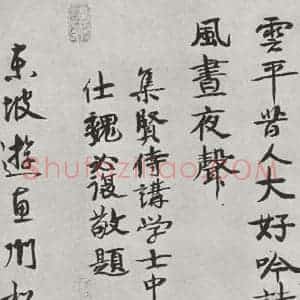 雲平昔人大好吟
風晝夜聲
集賢侍講学士中
仕魏必復敬題
東坡遊惠州松
Shufaziliao.COM